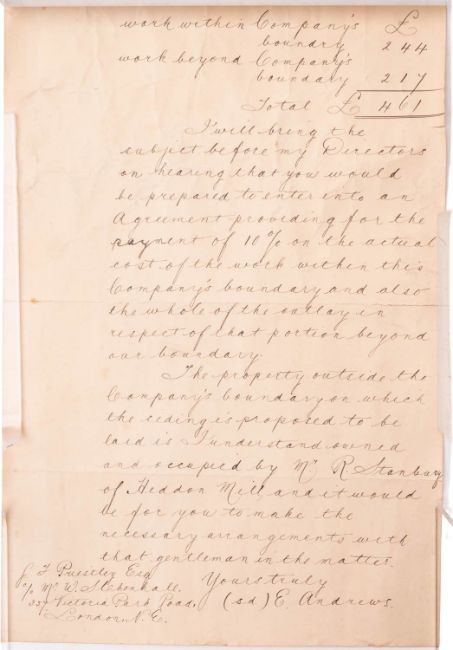 work within Company's £
boundry 244
work beyond Company's
boundary 217
Total £ 461
I will bring the
subject before my Directors
on hearing that you would
be prepared to enter into an
Agreement providing for the
payment of 10% on the actual
cost of the work within this
Company's boundary and also
the whole of the outlay in
respect of that portion beyond
our boundary.
The property outside the
Company's boundary on which
the siding is proposed to be
laid is I understand owned
and occupied by Mr R Stanbury
of Heddon Mill and it would
be for you to make the
necessary arrangements with
that gentleman in the matter.
Yours truly
(sd) E. Andrews.
J F Priestley Esq
c/o Mr W.
Victoria Park Road,
London N.E.